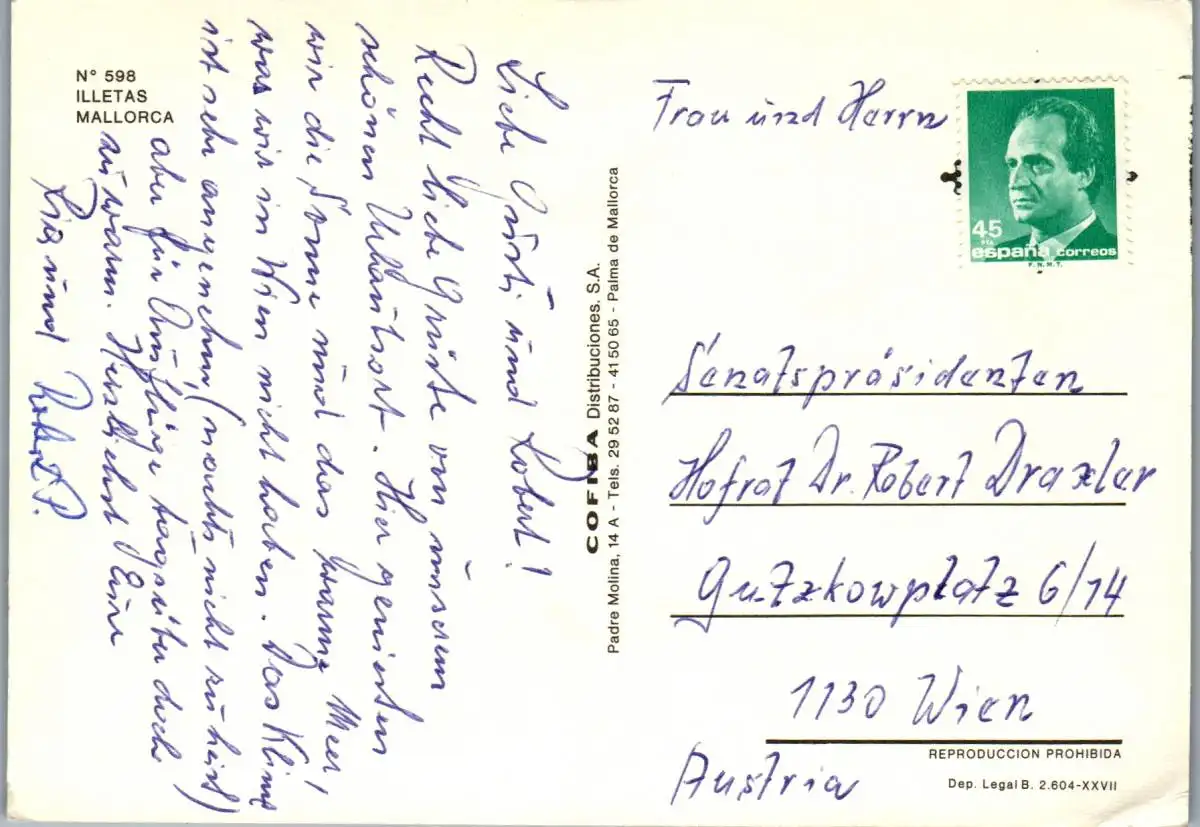 N° 598
ILLETAS
MALLORCA
Liebe Gusti und Robert!
Recht liebe Grüße von unserem
schönen Urlaubsort. Hier genießen
wir die Sonne und das warme Meer,
was wir in Wien nicht haben. Das Klima
ist sehr angenehm (nachts nicht zu heiß)
aber für Ausflüge tagsüber doch
zu warm. Herzlichst Eure
und Robert P.
COFIBA Distribuciones. S.A.
Padre Molina, 14 A - Tels. 29 52 87 - 41 50 65 - Palma de Mallorca
Frau und Herrn
45
PTA
españa correos
F.N.M.T.
Senatspräsidenten
Hofrat Dr. Robert Draxler
Gutzkowplatz 6/14
1130 Wien
Austria
REPRODUCCION PROHIBIDA
Dep. Legal B. 2.604-XXVII